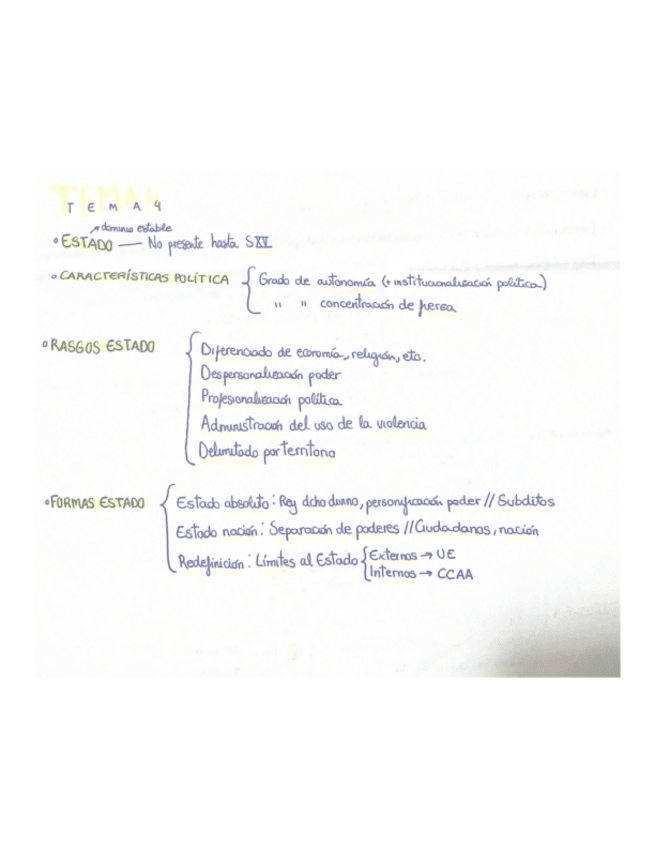 TEMA 4
dominio estable
ESTADO — No presente hasta S XV
CARACTERÍSTICAS POLÍTICA { Grado de autonomía (+ institucionalización política)
" " concentración de fuerza
RASGOS ESTADO { Diferenciado de economía, religión, etc.
Despersonalización poder
Profesionalización política
Administración del uso de la violencia
Delimitado por territorio
FORMAS ESTADO { Estado absoluto: Rey dcho divino, personificación poder // Súbditos
Estado nación: Separación de poderes // Ciudadanos, nación
Redefinición: Límites al Estado { Externos → UE
Internos → CCAA